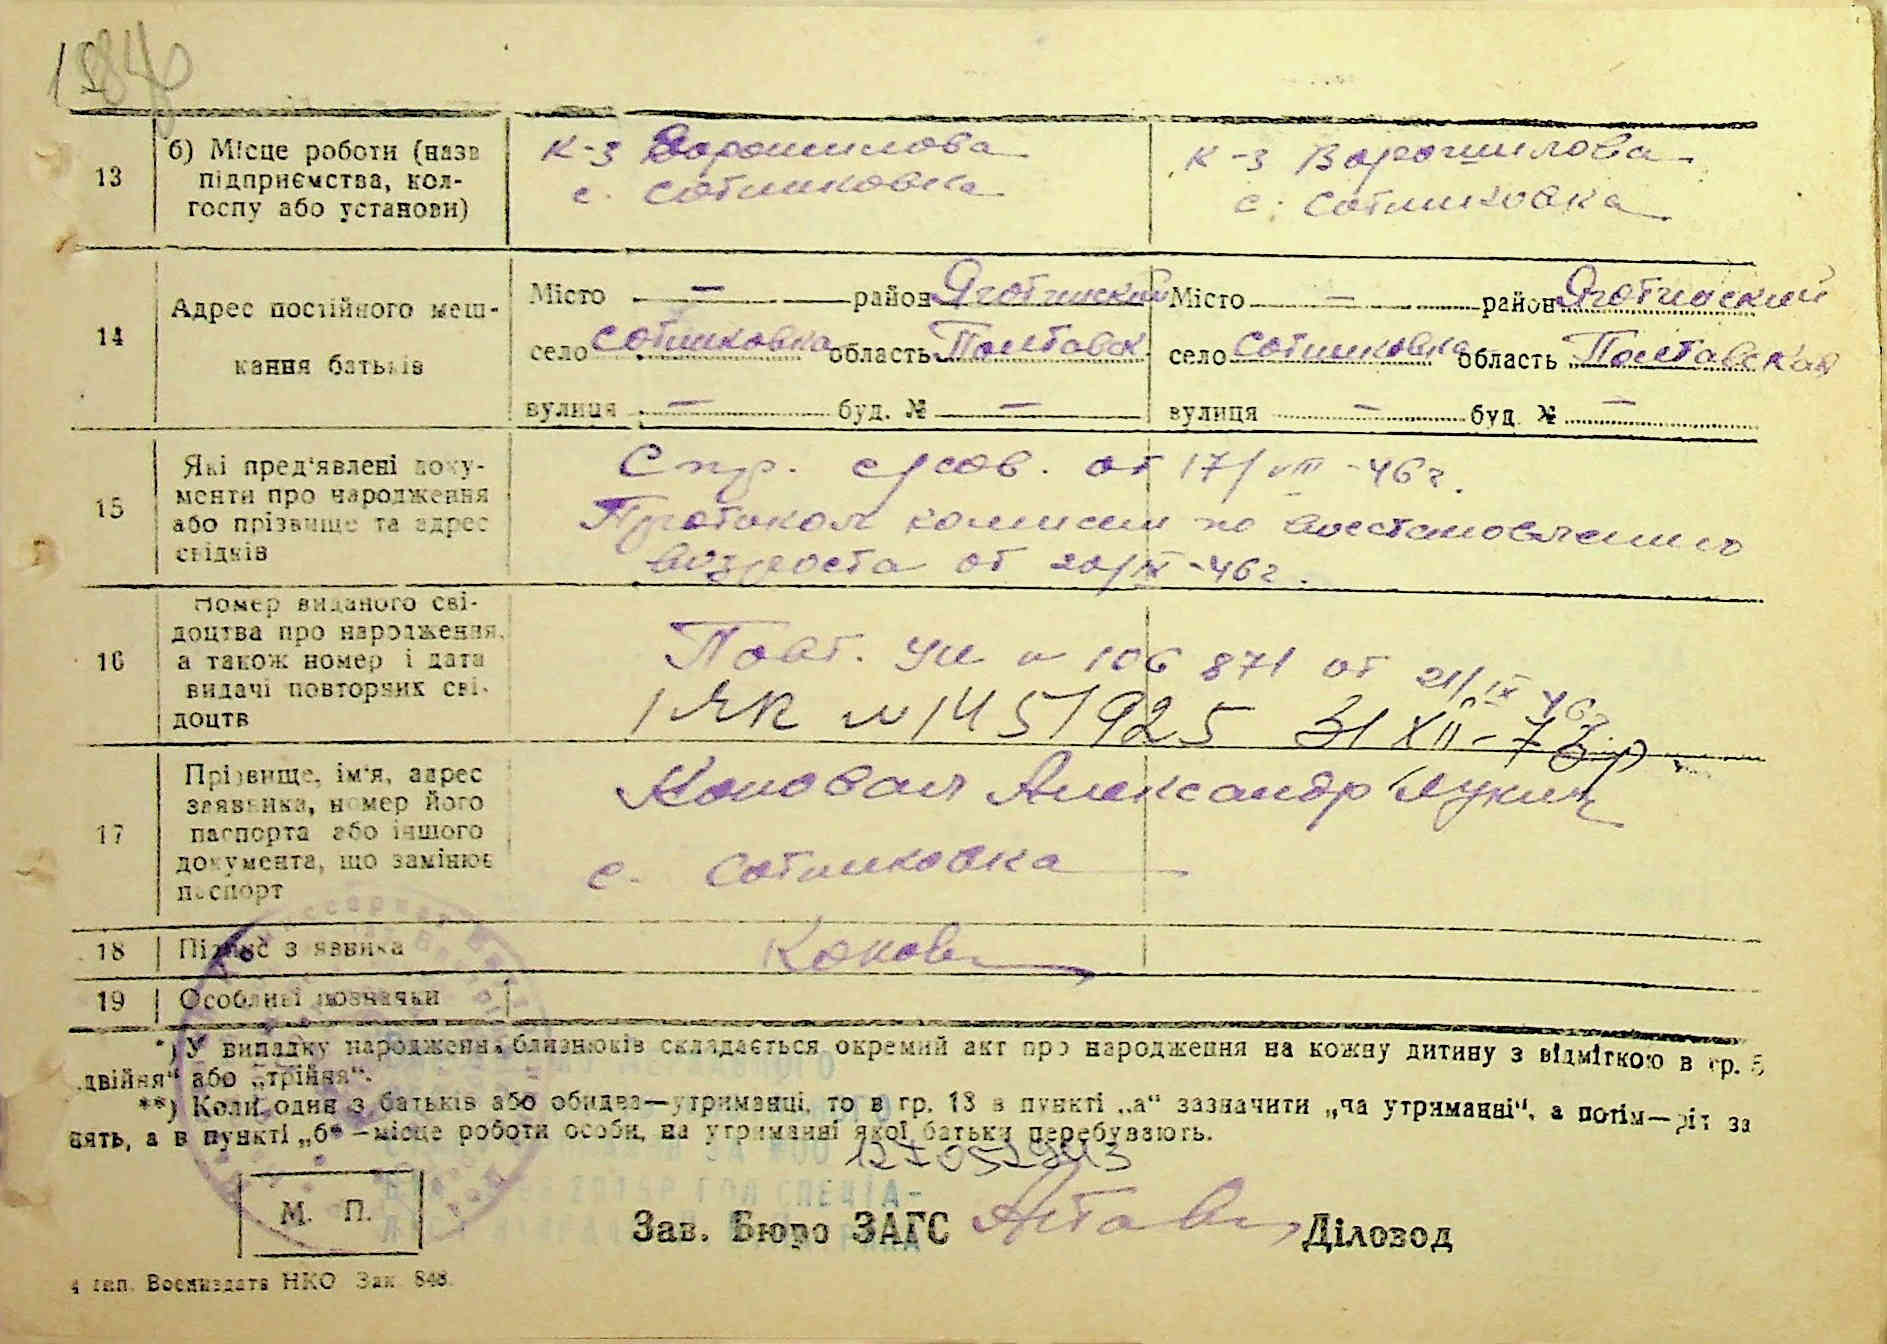 13
б) Місце роботи (назв
підприємства, кол-
госпу або установи)
к-з Ворошилова
с. Сотниковка
к-з Ворошилова
с. Сотниковка
14
Адрес постійного меш-
кання батьків
Місто — район Яготинский
село Сотниковка область Полтавск
вулиця — буд. № —
Місто — район Яготинский
село Сотниковка область Полтавская
вулиця — буд. № —
15
Які пред'явлені доку-
менти про народження
або прізвище та адрес
свідків
Спр. с/сов. от 17/VIII-46г.
Протокол комисии по восстановлению
возроста от 20/IX-46г.
16
Номер виданого сві-
доцтва про народження,
а також номер і дата
видачі повторних сві-
доцтв
Повт. УИ № 106871 от 21/IX 46г
№ 1451925 31 XII-
17
Прізвище, ім'я, адрес
заявника, номер його
паспорта або іншого
документа, що замінює
паспорт
Коновал Александр Лукич
с. Сотниковка
18
Підпис заявника
Конов
19
Особливі позначки
*) У випадку народження близнюків складається окремий акт про народження на кожну дитину з відміткою в гр. 5
„двійня" або „трійня".
**) Коли один з батьків або обидва—утриманці, то в гр. 13 в пункті „а" зазначити „на утриманні", а потім—
нять, а в пункті „б"—місце роботи особи, на утриманні якої батьки перебувають.
М. П.
Зав. Бюро ЗАГС
Діловод
4 тип. Воениздата НКО Зак 848.